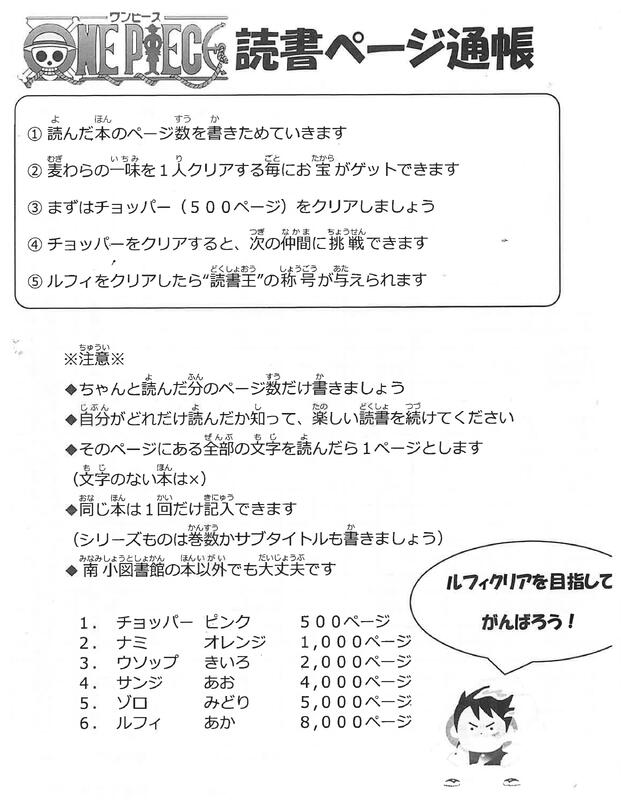 ワンピース
ONE PIECE 読書ページ通帳
① 読んだ本のページ数を書きためていきます
② 麦わらの一味を１人クリアする毎にお宝がゲットできます
③ まずはチョッパー（５００ページ）をクリアしましょう
④ チョッパーをクリアすると、次の仲間に挑戦できます
⑤ ルフィをクリアしたら“読書王”の称号が与えられます
※注意※
◆ちゃんと読んだ分のページ数だけ書きましょう
◆自分がどれだけ読んだか知って、楽しい読書を続けてください
◆そのページにある全部の文字を読んだら１ページとします
（文字のない本は×）
◆同じ本は１回だけ記入できます
（シリーズものは巻数かサブタイトルも書きましょう）
◆南小図書館の本以外でも大丈夫です
ルフィクリアを目指して
がんばろう！
１． チョッパー ピンク ５００ページ
２． ナミ オレンジ １,０００ページ
３． ウソップ きいろ ２,０００ページ
４． サンジ あお ４,０００ページ
５． ゾロ みどり ５,０００ページ
６． ルフィ あか ８,０００ページ